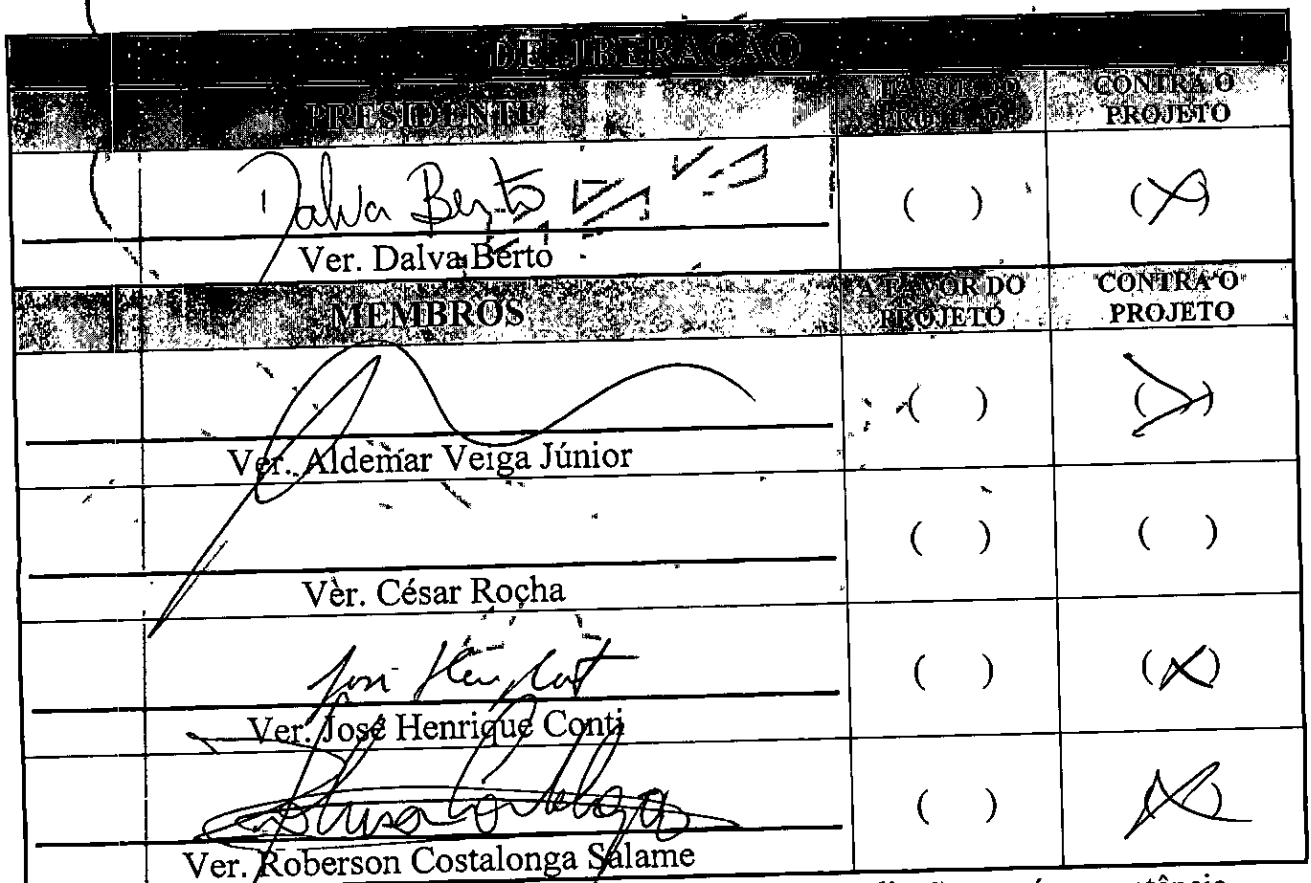 DELIBERAÇÃO
PRESIDENTE A FAVOR DO PROJETO CONTRA O PROJETO
Dalva Berto ( ) (X)
Ver. Dalva Berto
MEMBROS A FAVOR DO PROJETO CONTRA O PROJETO
( ) (X)
Ver. Aldemar Veiga Júnior
( ) ( )
Ver. César Rocha
( ) (X)
Ver. José Henrique Conti
( ) (X)
Ver. Roberson Costalonga Salame